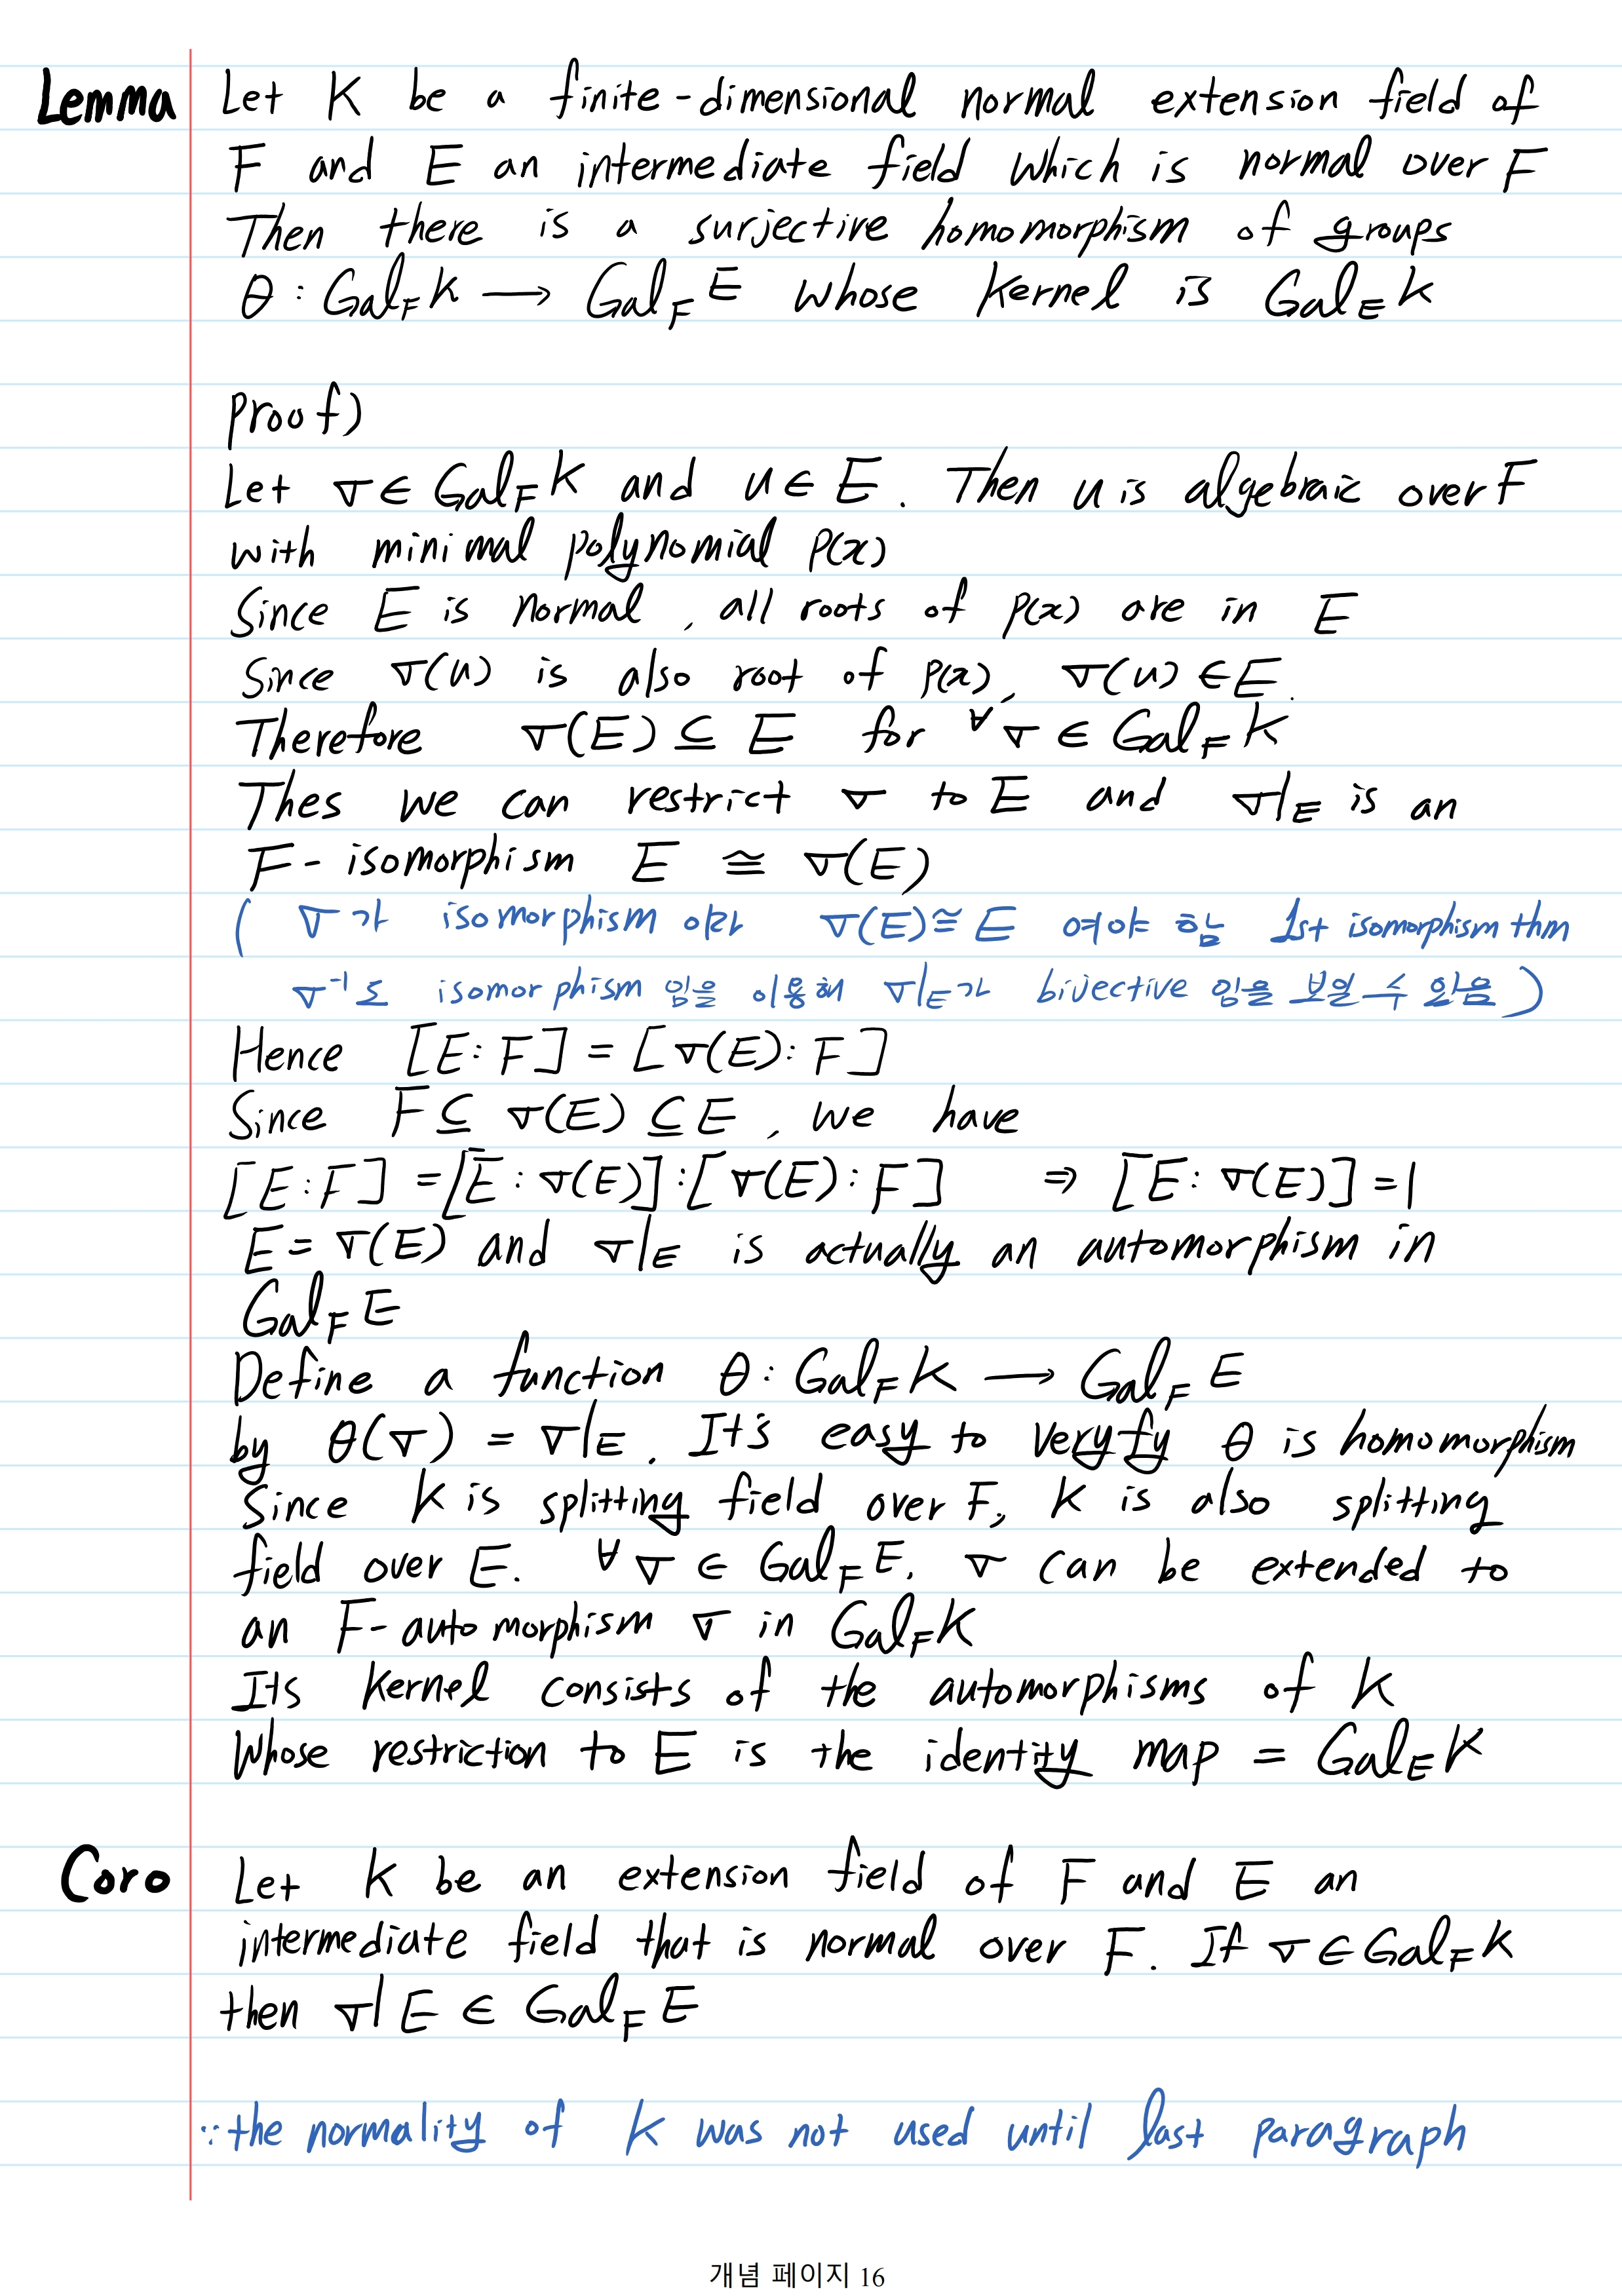 Lemma Let K be a finite-dimensional normal extension field of
F and E an intermediate field which is normal over F
Then there is a surjective homomorphism of groups
θ : Gal_F K → Gal_F E whose kernel is Gal_E K
proof)
Let σ ∈ Gal_F K and u ∈ E. Then u is algebraic over F
with minimal polynomial p(x)
Since E is normal, all roots of p(x) are in E
Since σ(u) is also root of p(x), σ(u) ∈ E.
Therefore σ(E) ⊆ E for ∀σ ∈ Gal_F K
Thes we can restrict σ to E and σ|_E is an
F-isomorphism E ≅ σ(E)
( σ가 isomorphism 이라 σ(E) ≅ E 여야 함 1st isomorphism thm
σ⁻¹도 isomorphism 임을 이용해 σ|_E가 bijective 임을 보일 수 있음 )
Hence [E:F] = [σ(E):F]
Since F ⊆ σ(E) ⊆ E, we have
[E:F] = [E:σ(E)]:[σ(E):F] ⇒ [E:σ(E)] = 1
E = σ(E) and σ|_E is actually an automorphism in
Gal_F E
Define a function θ : Gal_F K → Gal_F E
by θ(σ) = σ|_E. It's easy to veryfy θ is homomorphism
Since K is splitting field over F, K is also splitting
field over E. ∀σ ∈ Gal_F E, σ can be extended to
an F-automorphism σ in Gal_F K
Its kernel consists of the automorphisms of K
Whose restriction to E is the identity map = Gal_E K
Coro Let K be an extension field of F and E an
intermediate field that is normal over F. If σ ∈ Gal_F K
then σ|E ∈ Gal_F E
∵ the normality of K was not used until last paragraph
개념 페이지 16